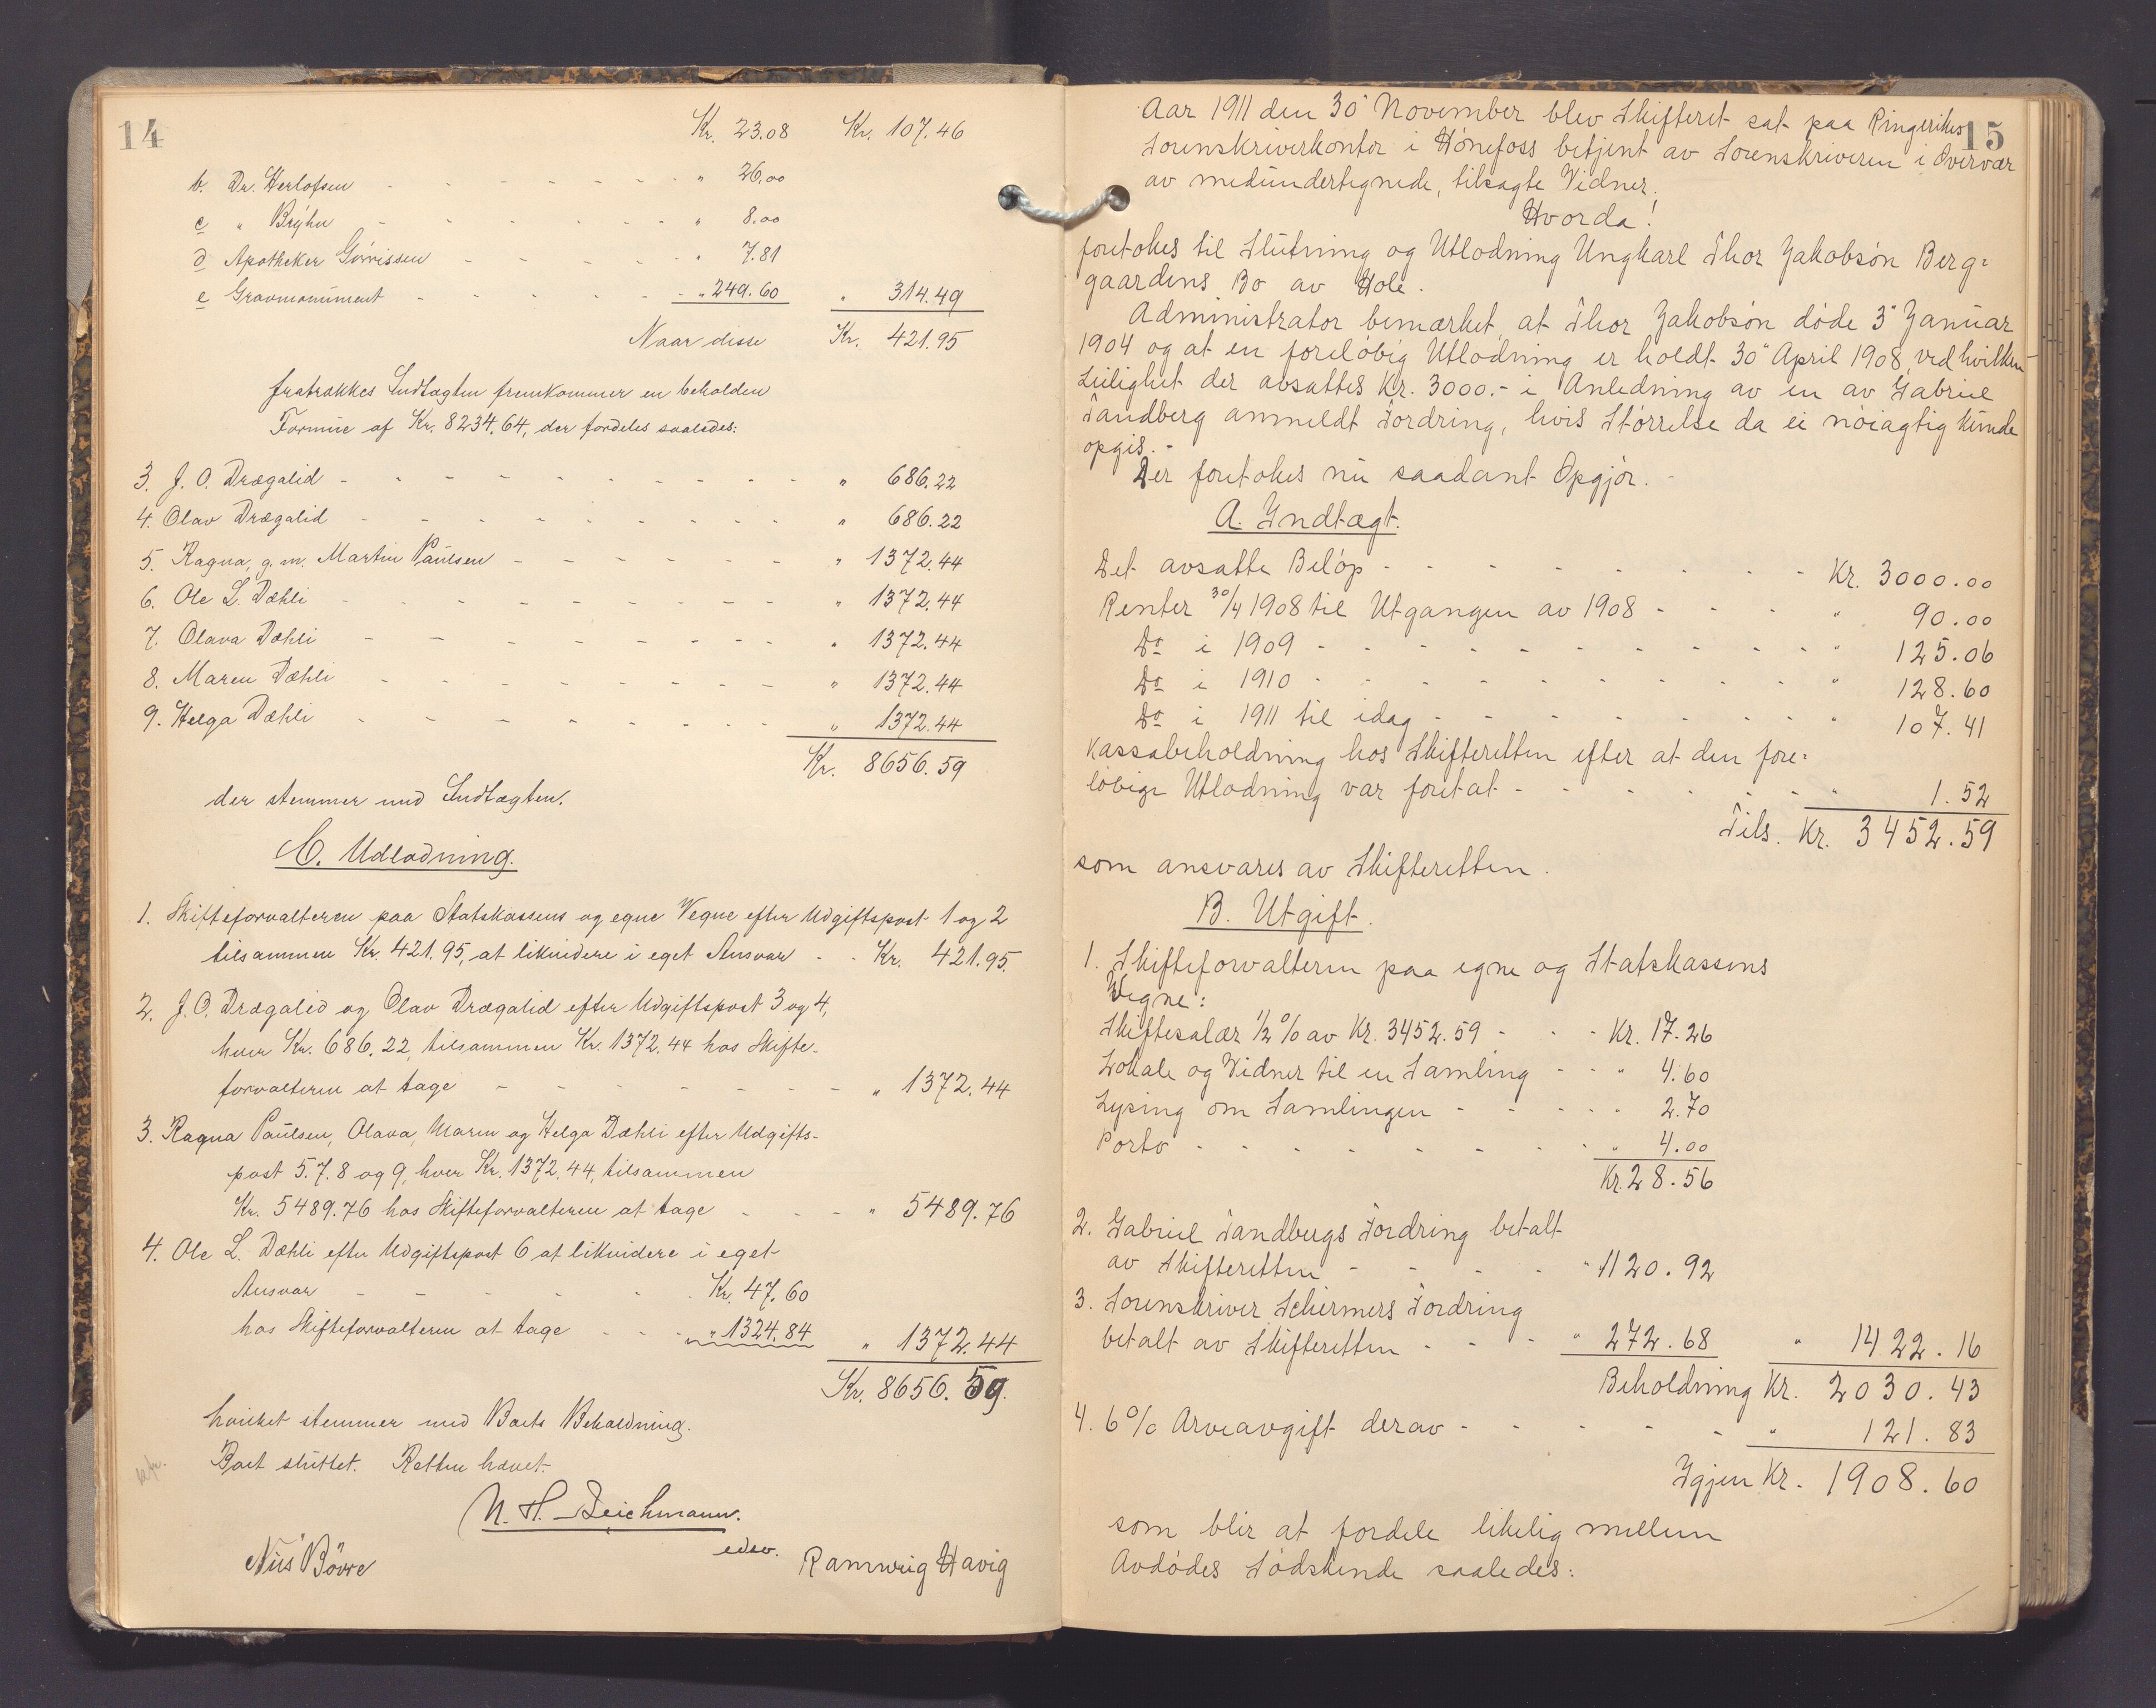 14
Kr. 23.08 Kr. 107.46
b. Dr. Herlofsen - - - - - - - " 26.00
c " Bryhn - - - - - - " 8.00
d Apotheker Gørrissen - - - - - " 7.81
e Gravmonument - - - - - - " 249.60 " 314.49
Naar disse Kr. 421.95
fratrækkes Indtægten fremkommer en beholden
Formue af Kr. 8234.64, der fordeles saaledes:
3. J. O. Drægalid - - - - - - - - - - " 686.22
4. Olav Drægalid - - - - - - - - - " 686.22
5. Ragna, g. m. Martin Paulsen - - - - - - " 1372.44
6. Ole L. Dæhli - - - - - - - - " 1372.44
7. Olava Dæhli - - - - - - - - " 1372.44
8. Maren Dæhli - - - - - - - - " 1372.44
9. Helga Dæhli - - - - - - - - " 1372.44
Kr. 8656.59
der stemmer med Indtægten.
C. Udlodning.
1. Skifteforvalteren paa Statskassens og egne Vegne efter Udgiftspost 1 og 2
tilsammen Kr. 421.95, at likvidere i eget Ansvar - - Kr. 421.95.
2. J. O. Drægalid og Olav Drægalid efter Udgiftspost 3 og 4,
hver Kr. 686.22, tilsammen Kr. 1372.44 hos Skifte-
forvalteren at tage - - - - - - - - " 1372.44
3. Ragna Paulsen, Olava, Maren og Helga Dæhli efter Udgifts-
post 5. 7. 8 og 9, hver Kr. 1372.44, tilsammen
Kr. 5489.76 hos Skifteforvalteren at tage - - - - " 5489.76
4. Ole L. Dæhli efter Udgiftspost 6 at likvidere i eget
Ansvar - - - - - - Kr. 47.60
hos Skifteforvalteren at tage - - - " 1324.84 " 1372.44
Kr. 8656.59.
hvilket stemmer med Boets Beholdning.
Boet sluttet. Retten hævet.
N. H. Zeichmann.
edsv.
Nils Bövre Ramwrig Havig
15
Aar 1911 den 30' November blev Skifteret sat paa Ringerikes
Sorenskriverkontor i Hönefoss betjent av Sorenskriveren i Overvær
av medundertegnede, tilsagte Vidner.
Hvorda!
foretokes til Slutning og Utlodning Ungkarl Thor Jakobsön Berg=
gaardens Bo av Hole.
Administrator bemærket, at Thor Jakobsön döde 3" Januar
1904 og at en forelöbig Utlodning er holdt 30" April 1908, ved hvilken
Leilighet der avsattes Kr. 3000.- i Anledning av en av Gabriel
Tandberg anmeldt Fordring, hvis Störrelse da ei nöiagtig kunde
opgis. -
Der foretokes nu saadant Opgjör. -
A. Indtægt.
Det avsatte Belöp - - - - - - - - - Kr. 3000.00
Renter 30/4 1908 til Utgangen av 1908 - - - " 90.00
Do i 1909 - - - - - - - - - - " 125.06
Do i 1910 - - - - - - - - - - " 128.60
Do i 1911 til idag - - - - - - - - " 107.41
Kassabeholdning hos Skifteretten efter at den fore=
löbige Utlodning var foretat - - - - - - " 1.52
Tils. Kr. 3452.59
som ansvares av Skifteretten.
B. Utgift.
1. Skifteforvalteren paa egne og Statskassens
Vegne:
Skiftesalær 1/2 % av Kr. 3452.59 - - - Kr. 17.26
Lokale og Vidner til en Samling - - " 4.60
Lysing om Samlingen - - - - " 2.70
Porto - - - - - - - - " 4.00
Kr. 28.56
2. Gabriel Tandbergs Fordring betalt
av Skifteretten - - - - - " 1120.92
3. Sorenskriver Schirmers Fordring
betalt av Skifteretten - - - " 272.68 " 1422.16
Beholdning Kr. 2030.43
4. 6 % Arveavgift derav - - - - - - " 121.83
Igjen Kr. 1908.60
som blir at fordele likelig mellem
Avdödes Södskende saaledes: